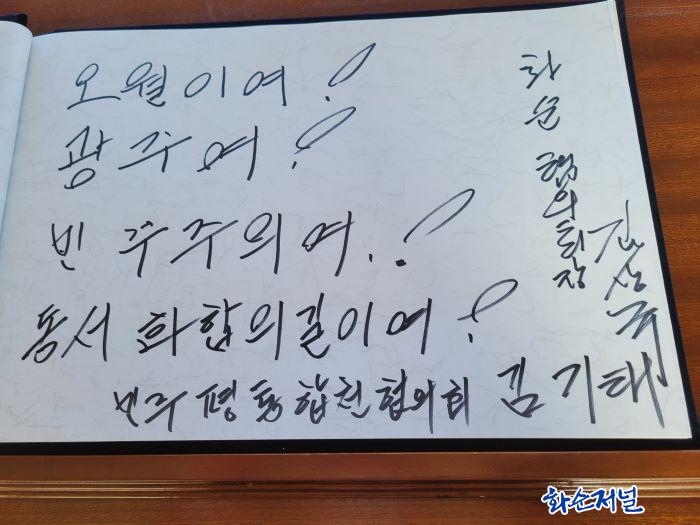 오월이여!
광주여!
민주주의여!
동서 화합의 길이여!
민주평통 합천협의회 김기태
화순 협의회장
김상
화순저널